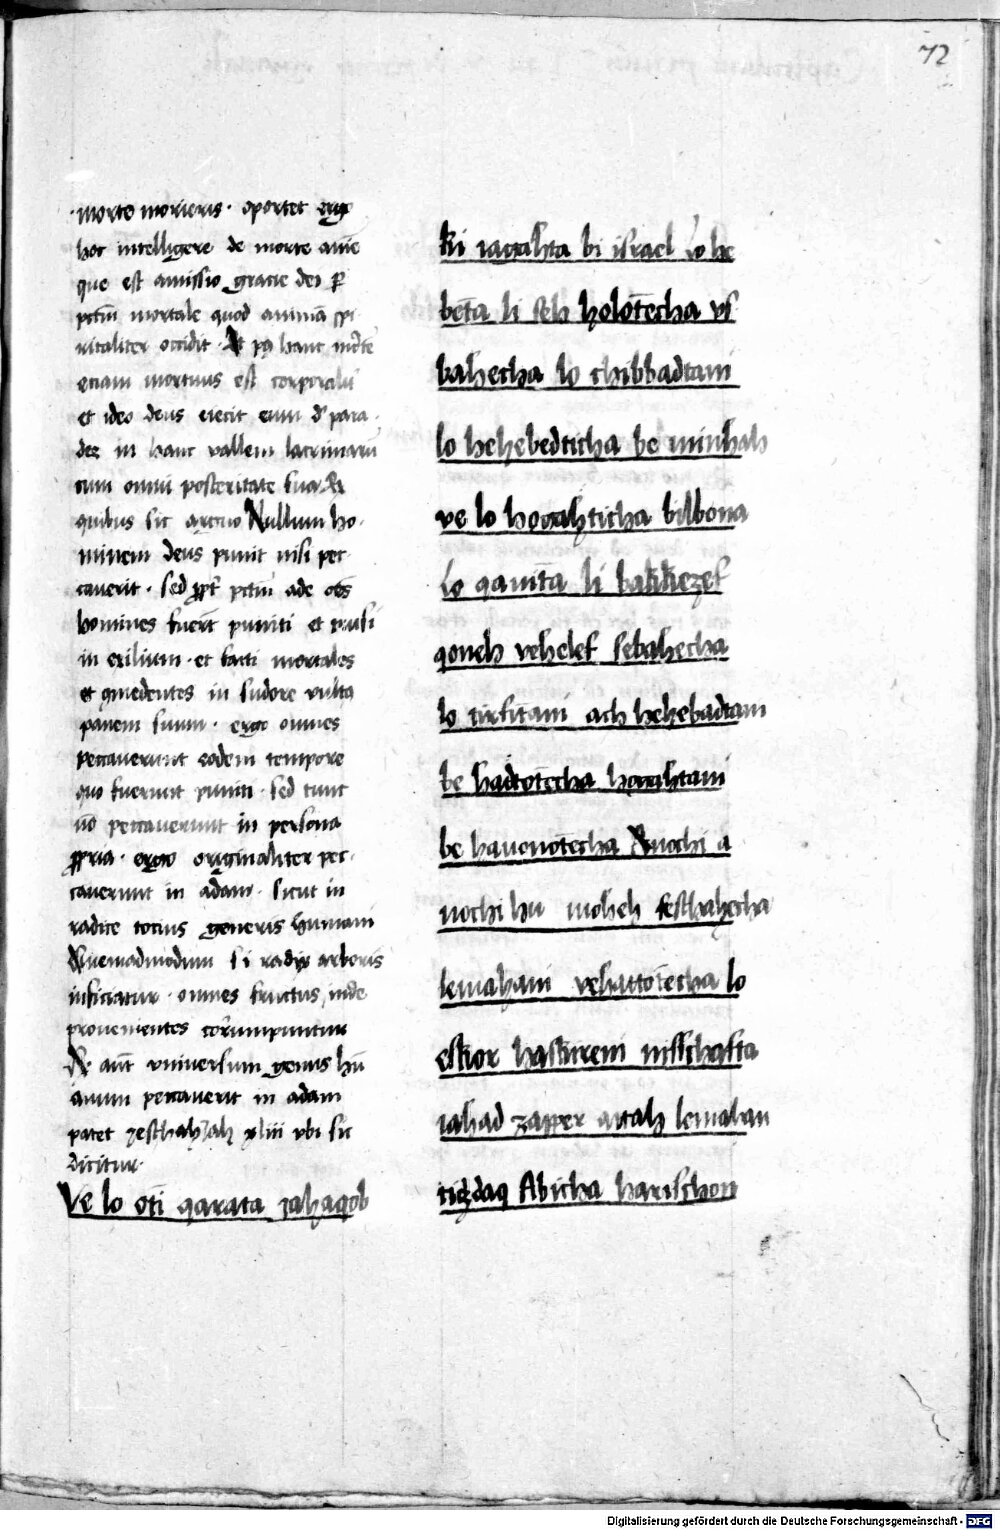 72
morte morieris · oportet ergo
hoc intelligere de morte anīe
que est amissio gracie dei
pctm mortale quod animā spi
ritaliter occidit · Et hanc mortē
etiam mortuus est corporalit
et ideo deus eiecit eum de para·
dee in hanc vallem lacrimarū
cum omni posteritate sua Ex
quibus sic arguo Nullum ho·
minem deus punit nisi pec·
cauerit · sed ppt pctm ade oēs
homines fuerūt puniti et missi
in exilium · et facti mortales
et comedentes in sudore vultꝰ
panem suum · ergo omnes
peccauerunt eodem tempore
quo fuerunt puniti · sed tunc
nō peccauerunt in persona
ppria · ergo originaliter pec·
cauerunt in adam · sicut in
radice totius generis humani
Quemadmodum si radix arboris
inficiatur · omnes fructus inde
prouenientes corrumpuntur
Qz autē vniuersum genus hu
anum peccauerit in adam
patet Jesthahjah xliii vbi sic
dicitur·
Ve lo oti qarata jahaqob
ki iagahta bi israel Lo he
beta li seh holotecha vs
bahecha lo chibbadtani
lo hehebedticha be minhah
ve lo hogahticha bilbona
Lo qanita li bakkezef
qoneh vehelef sebahecha
lo hirfitani ach hehebadtani
be hadtotecha hogahtani
be hauonotecha Anochi a
nochi hu moheh festhahecha
lemahani vehattotecha lo
eskor haskireni nisschafta
iahad zapper attah lemahan
tizdaq Abicha harisschon
Digitalisierung gefördert durch die Deutsche Forschungsgemeinschaft - DFG